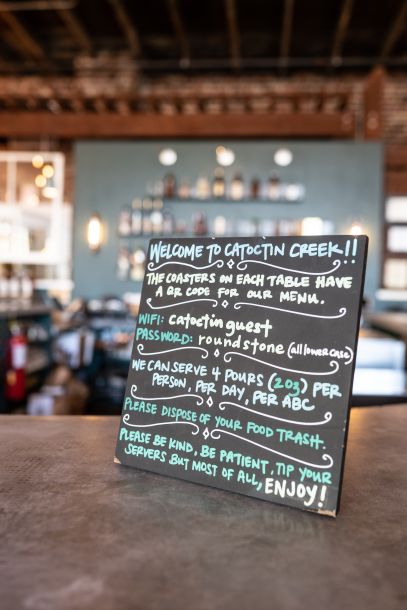 WELCOME TO CATOCTIN CREEK!!
THE COASTERS ON EACH TABLE HAVE
A QR CODE FOR OUR MENU.
WIFI: catoctinguest
PASSWORD: roundstone (all lower case)
WE CAN SERVE 4 POURS (2oz) PER
PERSON, PER DAY, PER ABC
PLEASE DISPOSE OF YOUR FOOD TRASH.
PLEASE BE KIND, BE PATIENT, TIP YOUR
SERVERS BUT MOST OF ALL, ENJOY!